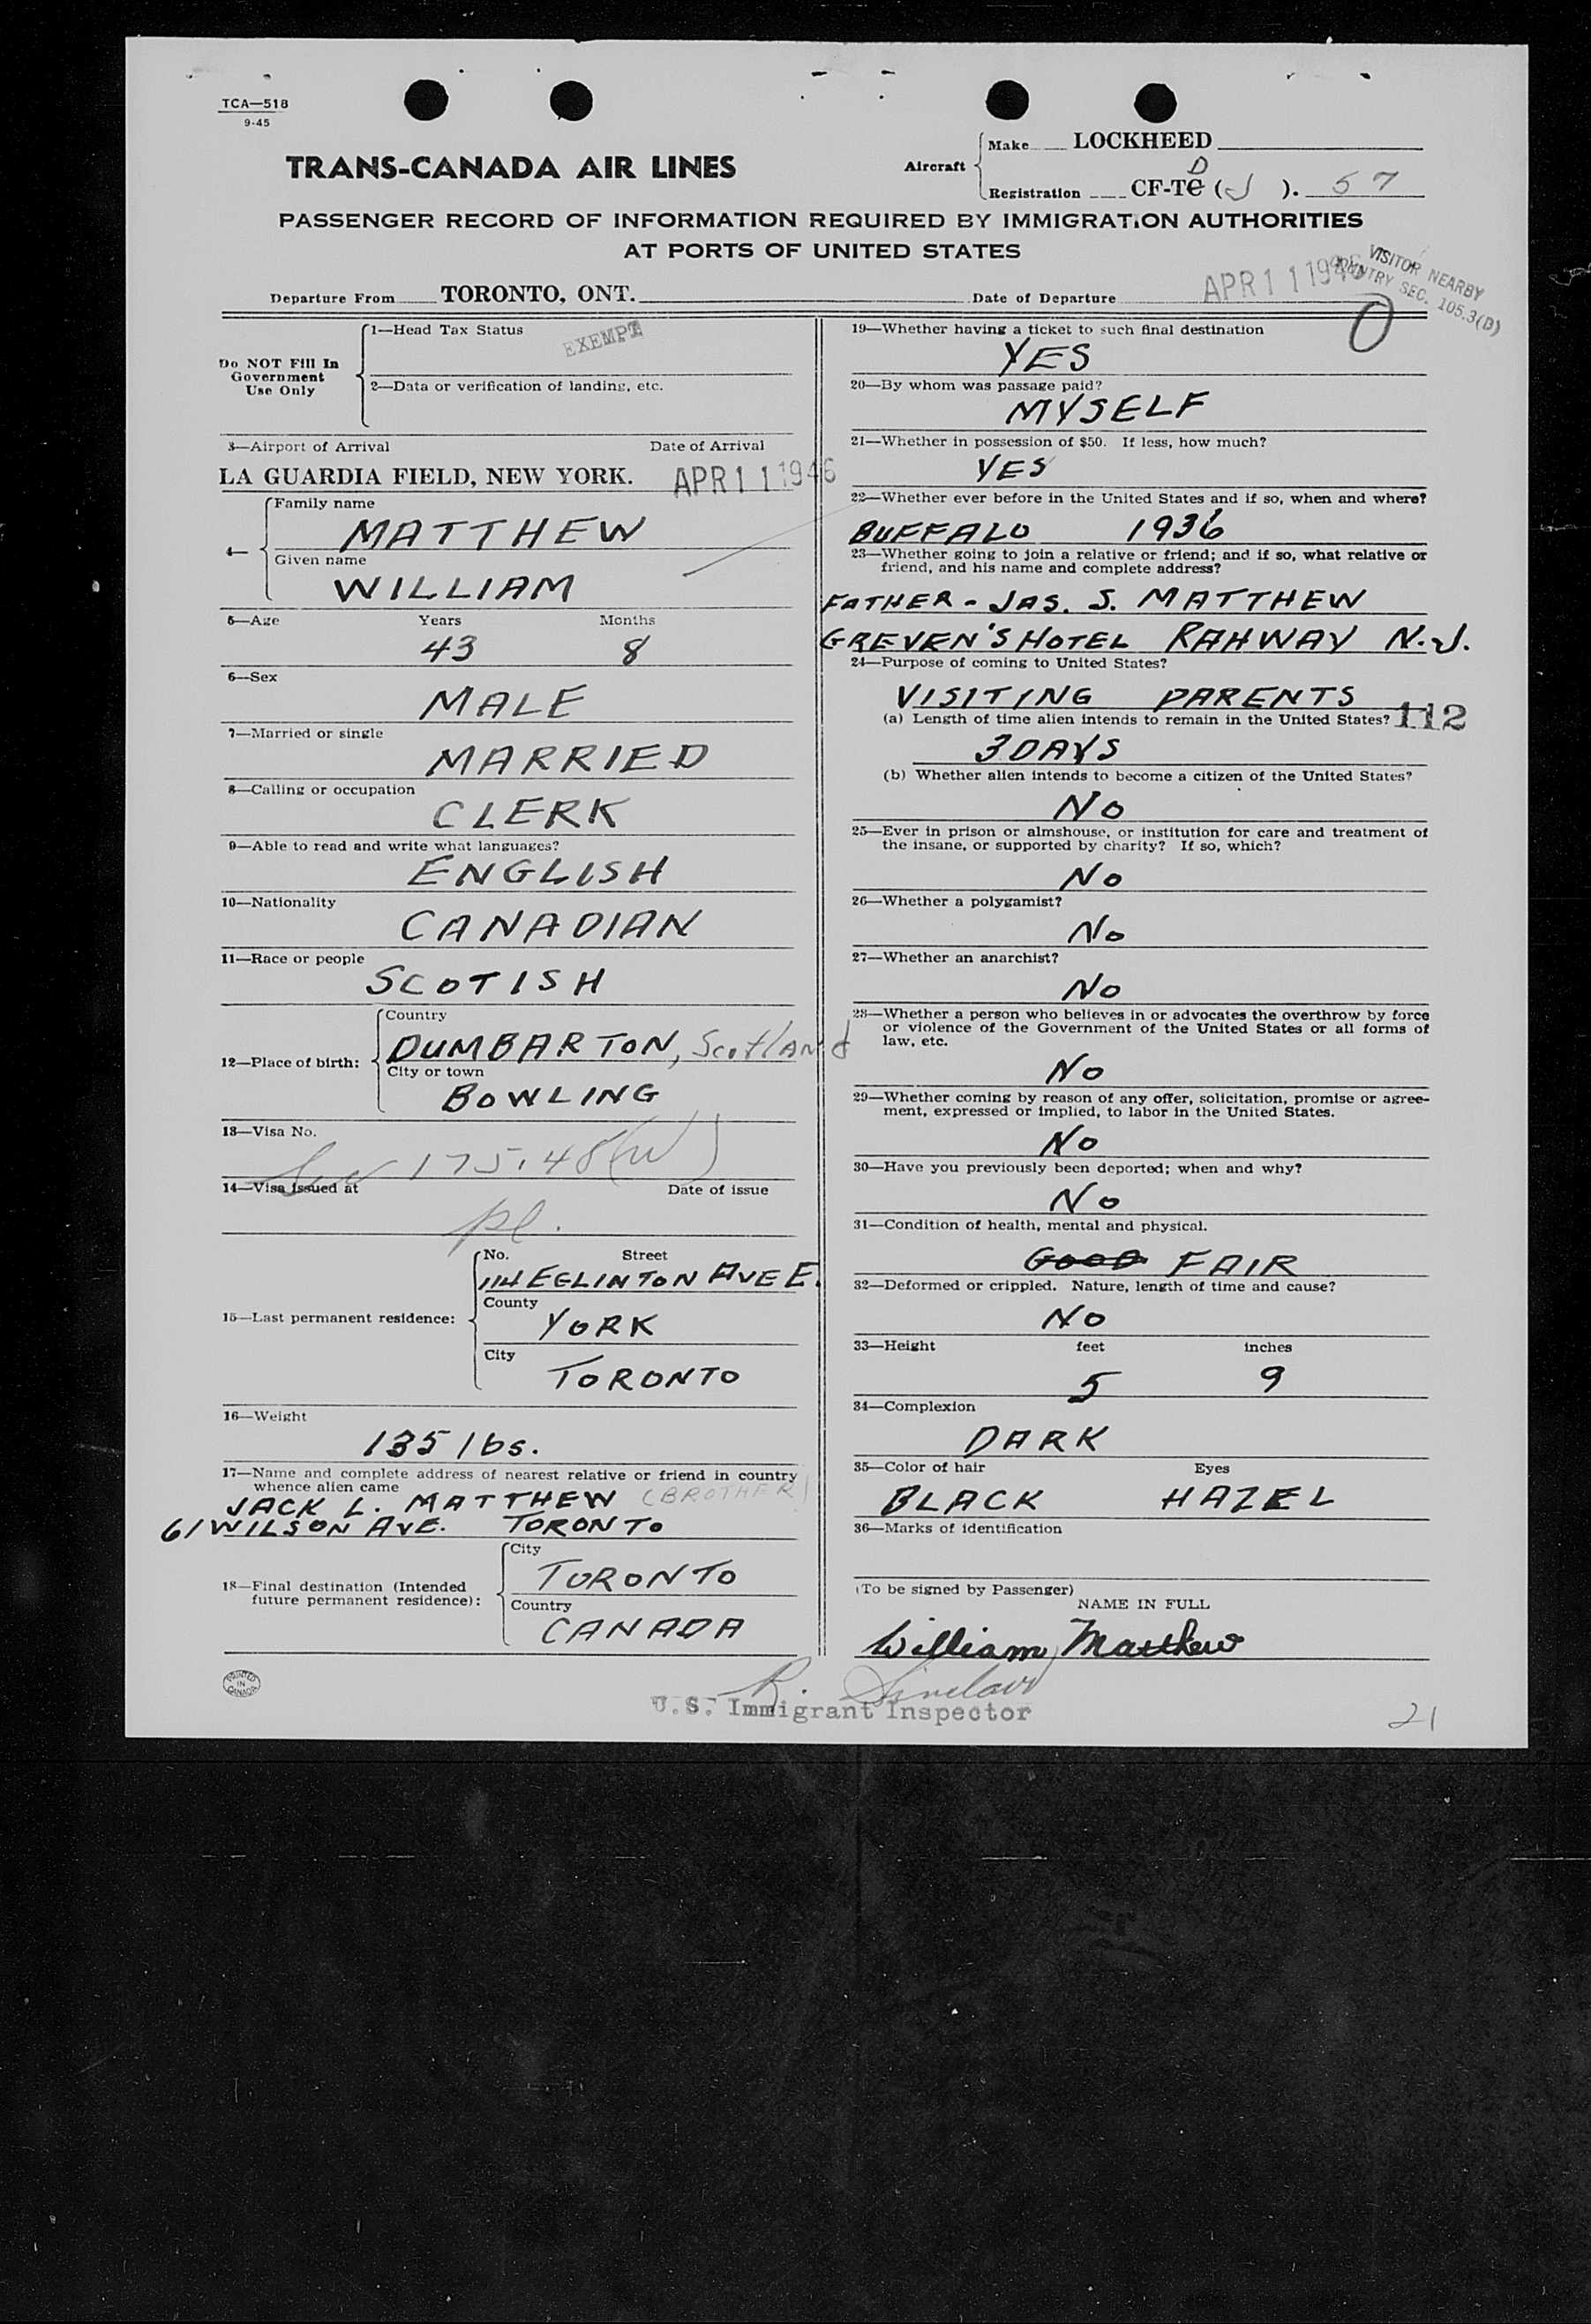 TCA—518
9-45
TRANS-CANADA AIR LINES
Aircraft
Make LOCKHEED
D
Registration CF-TC (J ). 57
PASSENGER RECORD OF INFORMATION REQUIRED BY IMMIGRATION AUTHORITIES
AT PORTS OF UNITED STATES
VISITOR NEARBY
COUNTRY SEC. 105.3(B)
Departure From TORONTO, ONT. Date of Departure APR 11 1946
Do NOT Fill In
Government
Use Only
1—Head Tax Status
EXEMPT
2—Data or verification of landing, etc.
3—Airport of Arrival Date of Arrival
LA GUARDIA FIELD, NEW YORK. APR 11 1946
4—
Family name
MATTHEW
Given name
WILLIAM
5—Age Years Months
43 8
6—Sex
MALE
7—Married or single
MARRIED
8—Calling or occupation
CLERK
9—Able to read and write what languages?
ENGLISH
10—Nationality
CANADIAN
11—Race or people
SCOTISH
12—Place of birth:
Country
DUMBARTON, Scotland
City or town
BOWLING
13—Visa No.
175.48(W)
14—Visa issued at Date of issue
15—Last permanent residence:
No. Street
114 EGLINTON AVE E.
County
YORK
City
TORONTO
16—Weight
135 lbs.
17—Name and complete address of nearest relative or friend in country
whence alien came
JACK L. MATTHEW (BROTHER)
61 WILSON AVE. TORONTO
18—Final destination (Intended
future permanent residence):
City
TORONTO
Country
CANADA
19—Whether having a ticket to such final destination
YES
20—By whom was passage paid?
MYSELF
21—Whether in possession of $50. If less, how much?
YES
22—Whether ever before in the United States and if so, when and where?
BUFFALO 1936
23—Whether going to join a relative or friend; and if so, what relative or
friend, and his name and complete address?
FATHER - JAS. S. MATTHEW
GREVEN'S HOTEL RAHWAY N.J.
24—Purpose of coming to United States?
VISITING PARENTS
(a) Length of time alien intends to remain in the United States? 112
3 DAYS
(b) Whether alien intends to become a citizen of the United States?
No
25—Ever in prison or almshouse, or institution for care and treatment of
the insane, or supported by charity? If so, which?
No
26—Whether a polygamist?
No
27—Whether an anarchist?
No
28—Whether a person who believes in or advocates the overthrow by force
or violence of the Government of the United States or all forms of
law, etc.
No
29—Whether coming by reason of any offer, solicitation, promise or agree-
ment, expressed or implied, to labor in the United States.
No
30—Have you previously been deported; when and why?
No
31—Condition of health, mental and physical.
GOOD FAIR
32—Deformed or crippled. Nature, length of time and cause?
No
33—Height feet inches
5 9
34—Complexion
DARK
35—Color of hair Eyes
BLACK HAZEL
36—Marks of identification
(To be signed by Passenger)
NAME IN FULL
William Matthew
PRINTED
IN
CANADA
R. Sinclair
U.S. Immigrant Inspector
21